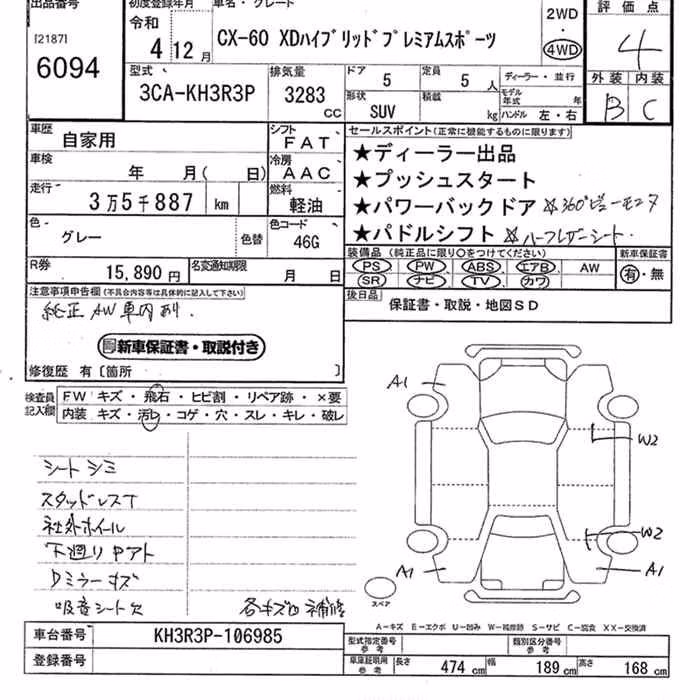 出品番号
[2187]
6094
初度登録年月
令和
4 12月
車名・グレード
CX-60 XDハイブリッドプレミアムスポーツ
2WD
・
4WD
評価点
4
外装 内装
B C
型式
3CA-KH3R3P
排気量
3283
cc
ドア
5
定員
5 人
形状
SUV
積載
kg
ディーラー・並行
モデル年式 年
ハンドル 左・右
車歴
自家用
シフト
FAT
車検
年 月( 日)
冷房
AAC
走行
3万5千887 km
燃料
軽油
色
グレー
色替
色コード
46G
R券
15,890円
名変通知期限
月 日
セールスポイント(正常に機能するものに限ります)
★ディーラー出品
★プッシュスタート
★パワーバックドア ☆360°ビューモニタ
★パドルシフト ☆ハーフレザーシート
装備品 (純正品に限り○をつけてください)
PS PW ABS エアB AW
SR ナビ TV カワ
新車保証書
有・無
後日品
保証書・取説・地図SD
注意事項申告欄(不具合内容等は具体的に記入して下さい)
純正AW車内あり.
新車保証書・取説付き
修復歴 有〔箇所 〕
検査員記入欄
FW キズ・飛石・ヒビ割・リペア跡・×要
内装 キズ・汚れ・コゲ・穴・スレ・キレ・破レ
シートシミ
スタッドレスT
社外ホイール
下廻りPアト
Dミラーキズ
吸音シート欠
各キズ 補修
A1
W2
W2
A1
A1
スペア
A－キズ E－エクボ U－凹み W－補修跡 S－サビ C－腐食 XX－交換済
車台番号
KH3R3P-106985
登録番号
型式指定番号
参考
類別区分番号
参考
車庫証明用
参考
長さ 474 cm 幅 189 cm 高さ 168 cm